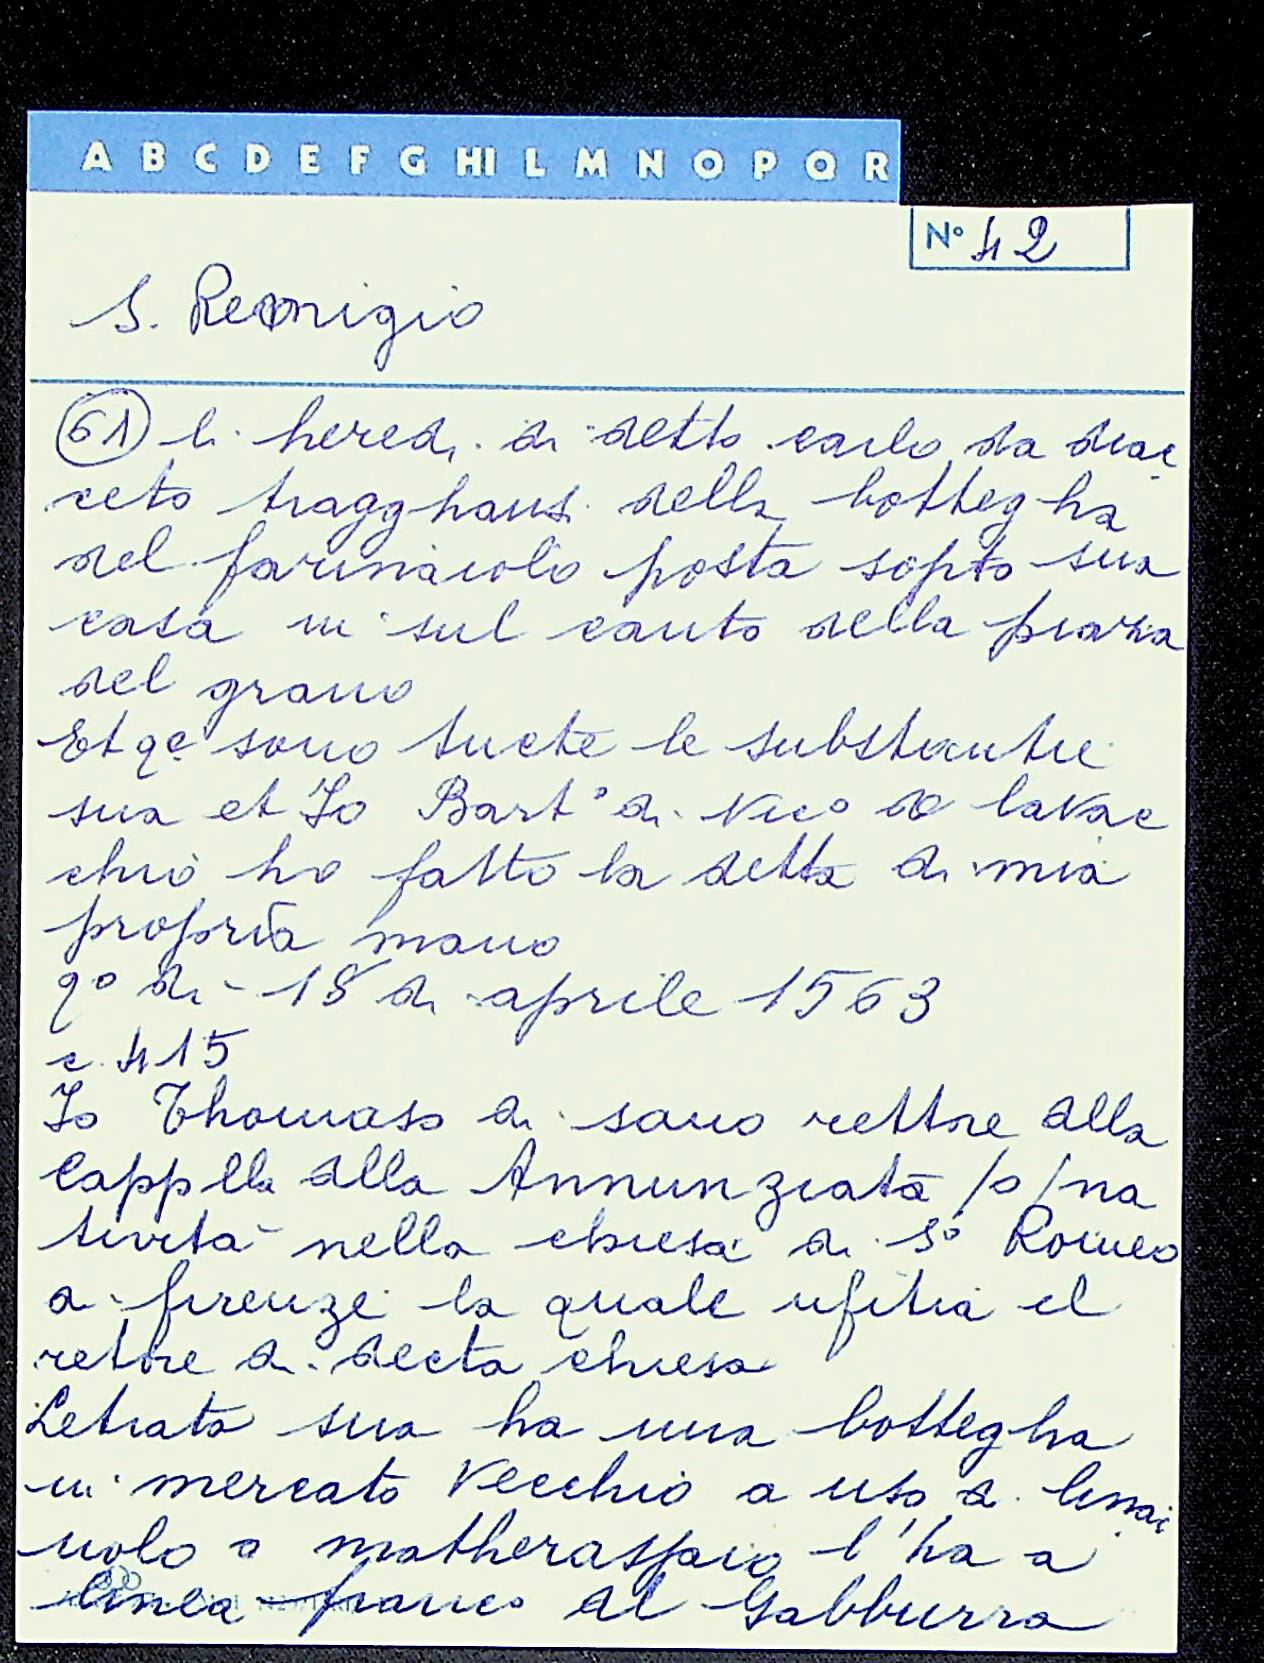 A B C D E F G HI L M N O P Q R
N° 42
S. Remigio
61 li heredi di detto carlo da diac
ceto tragghans della bottegha
del farinaiolo posta sopto sua
casa in sul canto della piaza
del grano
Et qe sono tucte le substantie
sua et Io Bart° di Nic° de lavac
chio ho fatto la detta di mia
propria mano
q° di - 18 di aprile 1563
c. 415
Io Thomaso di sano rettore alla
Cappella della Annunziata /o/ na
tività nella chiesa di S° Romeo
a firenze la quale ufitia el
retore di decta chiesa
Letrata sua ha una bottegha
in mercato Vecchio a uso di linai
uolo o matheraspaio l'ha a
linea franc° del Gabburra